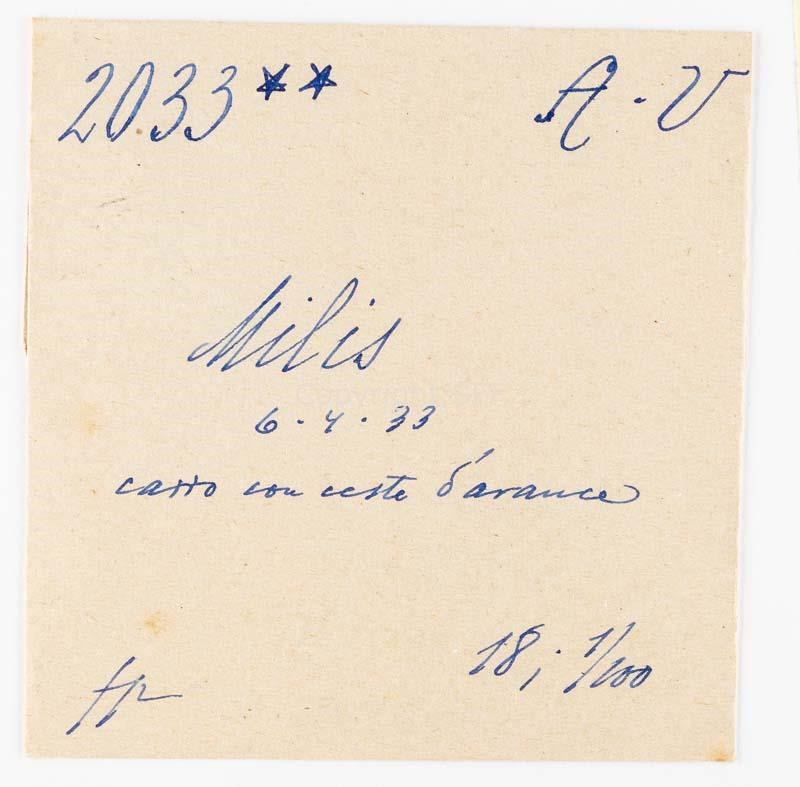 2033** A - V
Milis
6 - 4 - 33
carro con ceste d'arance
18; 1/100